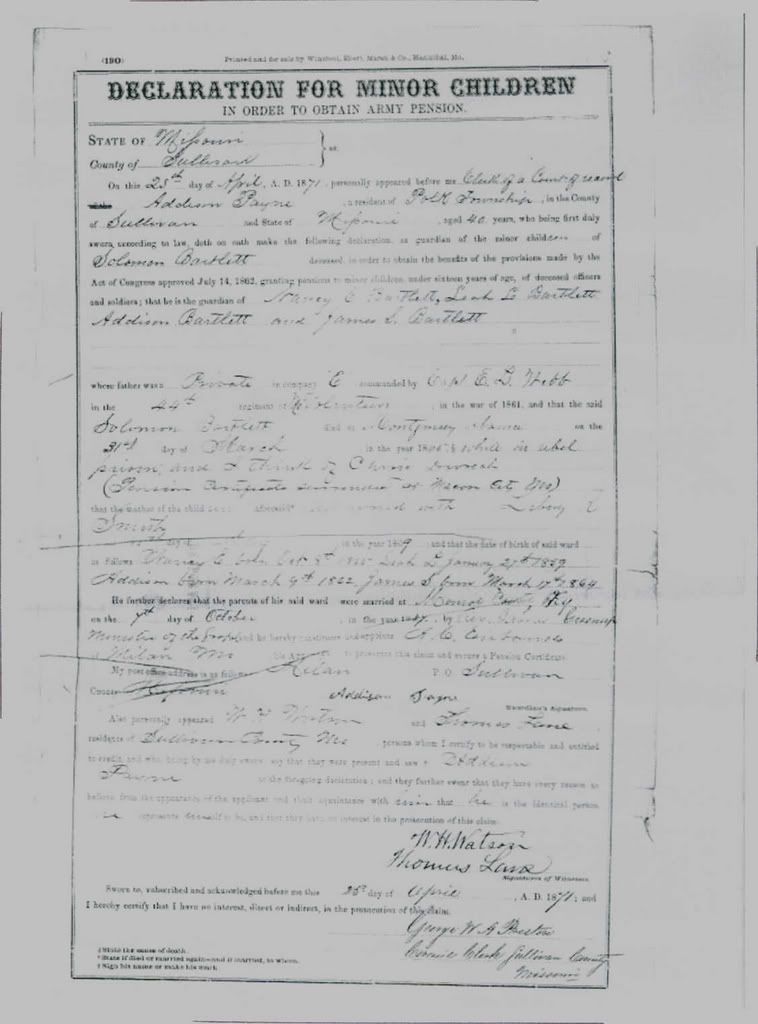 (190)
Printed and for sale by Winchell, Ebert, Marsh & Co., Hannibal, Mo.
DECLARATION FOR MINOR CHILDREN
IN ORDER TO OBTAIN ARMY PENSION.
STATE OF Missouri
County of Sullivan } ss.
On this 25th day of April, A. D. 1871, personally appeared before me Clerk of a Court of record
Addison Payne, a resident of Polk Township, in the County
of Sullivan and State of Missouri, aged 40 years, who being first duly
sworn, according to law, doth on oath make the following declaration, as guardian of the minor children of
Solomon Bartlett deceased, in order to obtain the benefits of the provisions made by the
Act of Congress approved July 14, 1862, granting pensions to minor children, under sixteen years of age, of deceased officers
and soldiers; that he is the guardian of Nancy C Bartlett, Leah L Bartlett
Addison Bartlett and James S. Bartlett
whose father was a Private in company E commanded by Capt E. L. Webb
in the 44th regiment of Volunteers, in the war of 1861, and that the said
Solomon Bartlett died at Montgomery on the
31st day of March in the year while in rebel
prison, and I think of Chronic
(Pension Certificate at Macon Mo)
that the mother of the child with
Smith
day of in the year 1869; and that the date of birth of said ward
as follows Nancy C born Oct Leah L January 27th 1859
Addison born March 9th James S born March 17th 1864
He further declares that the parents of his said ward were married at Monroe County Ky
on the 7th day of October, in the year by Rev.
Minister of the Gospel and he hereby constitutes and appoints
of Milan Mo his Attorney to prosecute this claim and secure a Pension Certificate.
My post office address is as follows: Milan P. O. Sullivan
County Missouri
Addison Payne
Guardian's Signature.
Also personally appeared W. H Watson and Thomas Lane
residents of Sullivan County Mo, persons whom I certify to be respectable and entitled
to credit, and who being by me duly sworn, say that they were present and saw Addison
Payne to the foregoing declaration; and they further swear that they have every reason to
believe from the appearance of the applicant and their acquaintance with him that he is the identical person
he represents himself to be, and that they have no interest in the prosecution of this claim.
W. H. Watson
Thomas Lane
Signatures of Witnesses.
Sworn to, subscribed and acknowledged before me this 25th day of April, A. D. 1871; and
I hereby certify that I have no interest, direct or indirect, in the prosecution of this claim.
George W A
Clerk Sullivan County
Missouri
† State the cause of death.
* State if died or married again—and if married, to whom.
‡ Sign his name or make his mark.